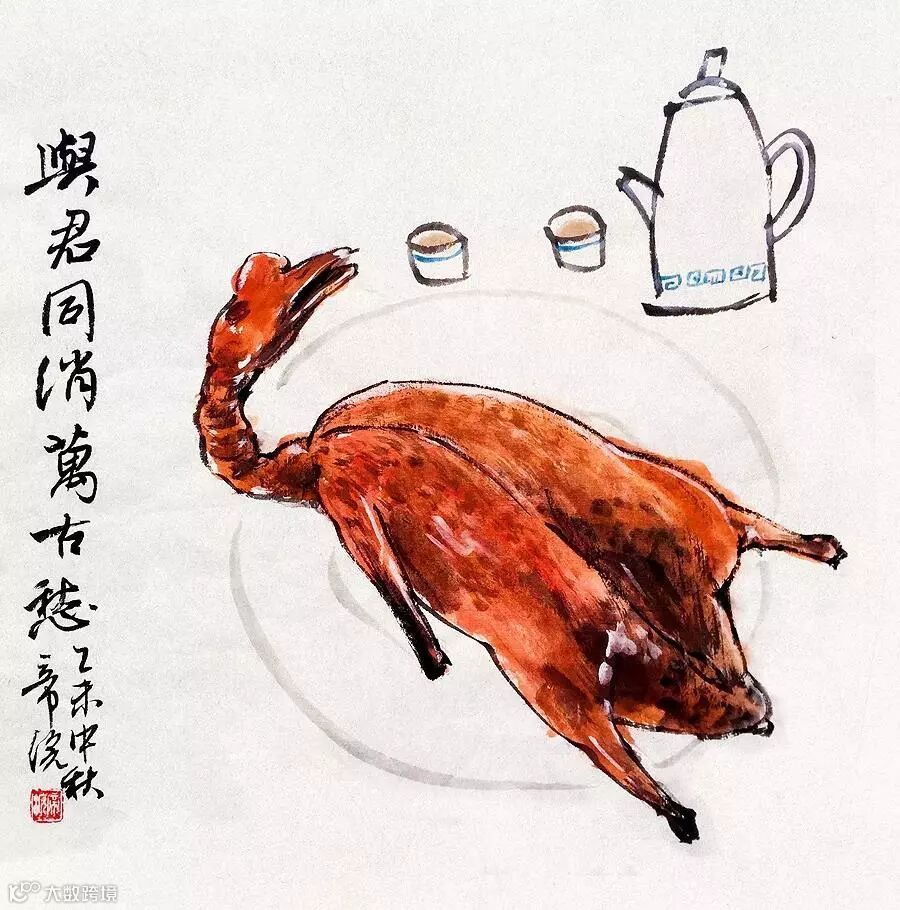 與君同消萬古愁
乙未中秋
帝浣
大数跨境